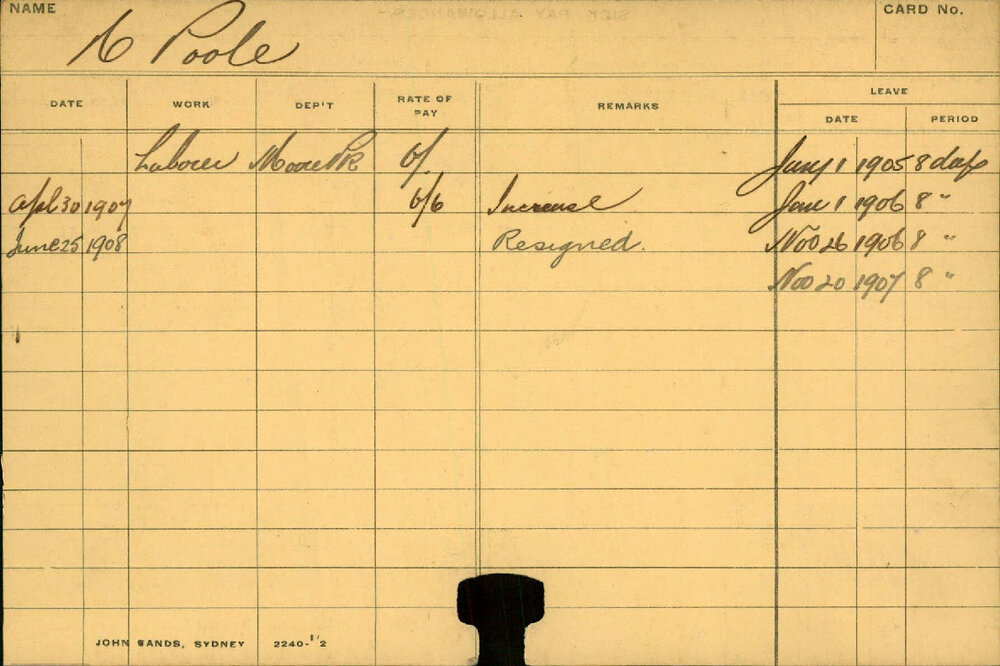 NAME CARD No.
Poole
LEAVE
DATE WORK DEP'T RATE OF PAY REMARKS DATE PERIOD
Laborer Moore Pk 6/. Jany 1 1905 8 days
Apl 30 1907 6/6 Increase Jan 1 1906 8 "
June 25 1908 Resigned. Nov 26 1906 8 "
Nov 20 1907 8 "
JOHN SANDS, SYDNEY 2240-1/2